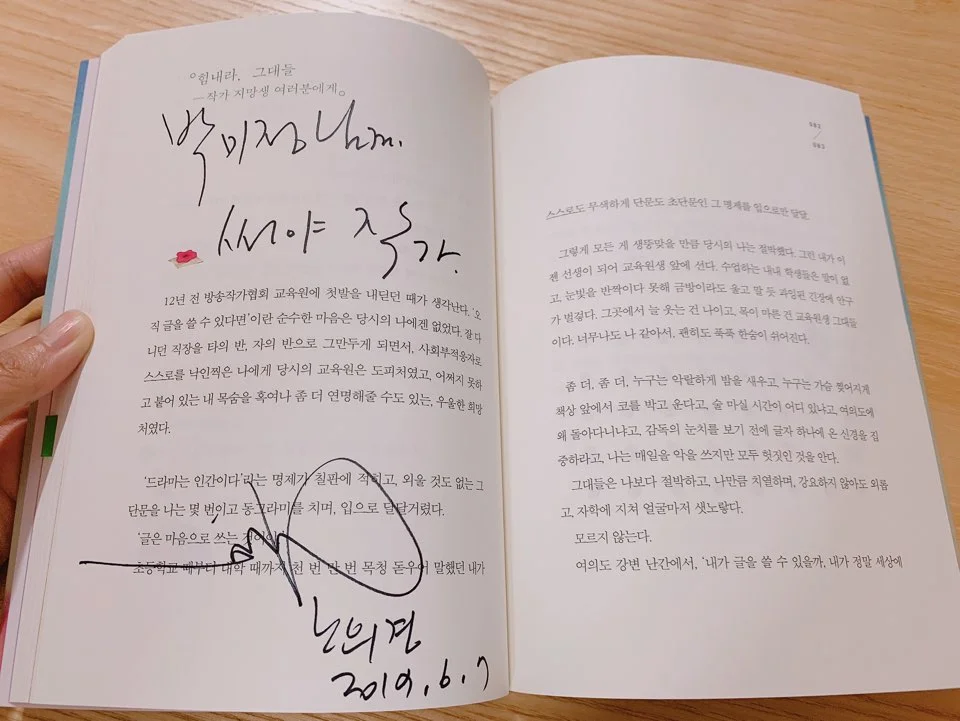 힘내라, 그대들
—작가 지망생 여러분에게。
박미정님께.
써야 작가.
12년 전 방송작가협회 교육원에 첫발을 내딛던 때가 생각난다. ‘오
직 글을 쓸 수 있다면’이란 순수한 마음은 당시의 나에겐 없었다. 잘 다
니던 직장을 타의 반, 자의 반으로 그만두게 되면서, 사회부적응자로
스스로를 낙인찍은 나에게 당시의 교육원은 도피처였고, 어쩌지 못하
고 붙어 있는 내 목숨을 혹여나 좀 더 연명해줄 수도 있는, 우울한 희망
처였다.
‘드라마는 인간이다’라는 명제가 칠판에 적히고, 외울 것도 없는 그
단문을 나는 몇 번이고 동그라미를 치며, 입으로 달달거렸다.
‘글은 마음으로 쓰는 것이
초등학교 때부터 대학 때까지 천 번 만 번 목청 돋우어 말했던 내가
노희경
2019.6.7
082
083
스스로도 무색하게 단문도 초단문인 그 명제를 입으로만 달달.
그렇게 모든 게 생뚱맞을 만큼 당시의 나는 절박했다. 그런 내가 이
젠 선생이 되어 교육원생 앞에 선다. 수업하는 내내 학생들은 말이 없
고, 눈빛을 반짝이다 못해 금방이라도 울고 말 듯 과잉된 긴장에 안구
가 벌겋다. 그곳에서 늘 웃는 건 나이고, 목이 마른 건 교육원생 그대들
이다. 너무나도 나 같아서, 괜히도 푹푹 한숨이 쉬어진다.
좀 더, 좀 더, 누구는 악랄하게 밤을 새우고, 누구는 가슴 찢어지게
책상 앞에서 코를 박고 운다고, 술 마실 시간이 어디 있냐고, 여의도에
왜 돌아다니냐고, 감독의 눈치를 보기 전에 글자 하나에 온 신경을 집
중하라고, 나는 매일을 악을 쓰지만 모두 헛짓인 것을 안다.
그대들은 나보다 절박하고, 나만큼 치열하며, 강요하지 않아도 외롭
고, 자학에 지쳐 얼굴마저 샛노랗다.
모르지 않는다.
여의도 강변 난간에서, ‘내가 글을 쓸 수 있을까, 내가 정말 세상에